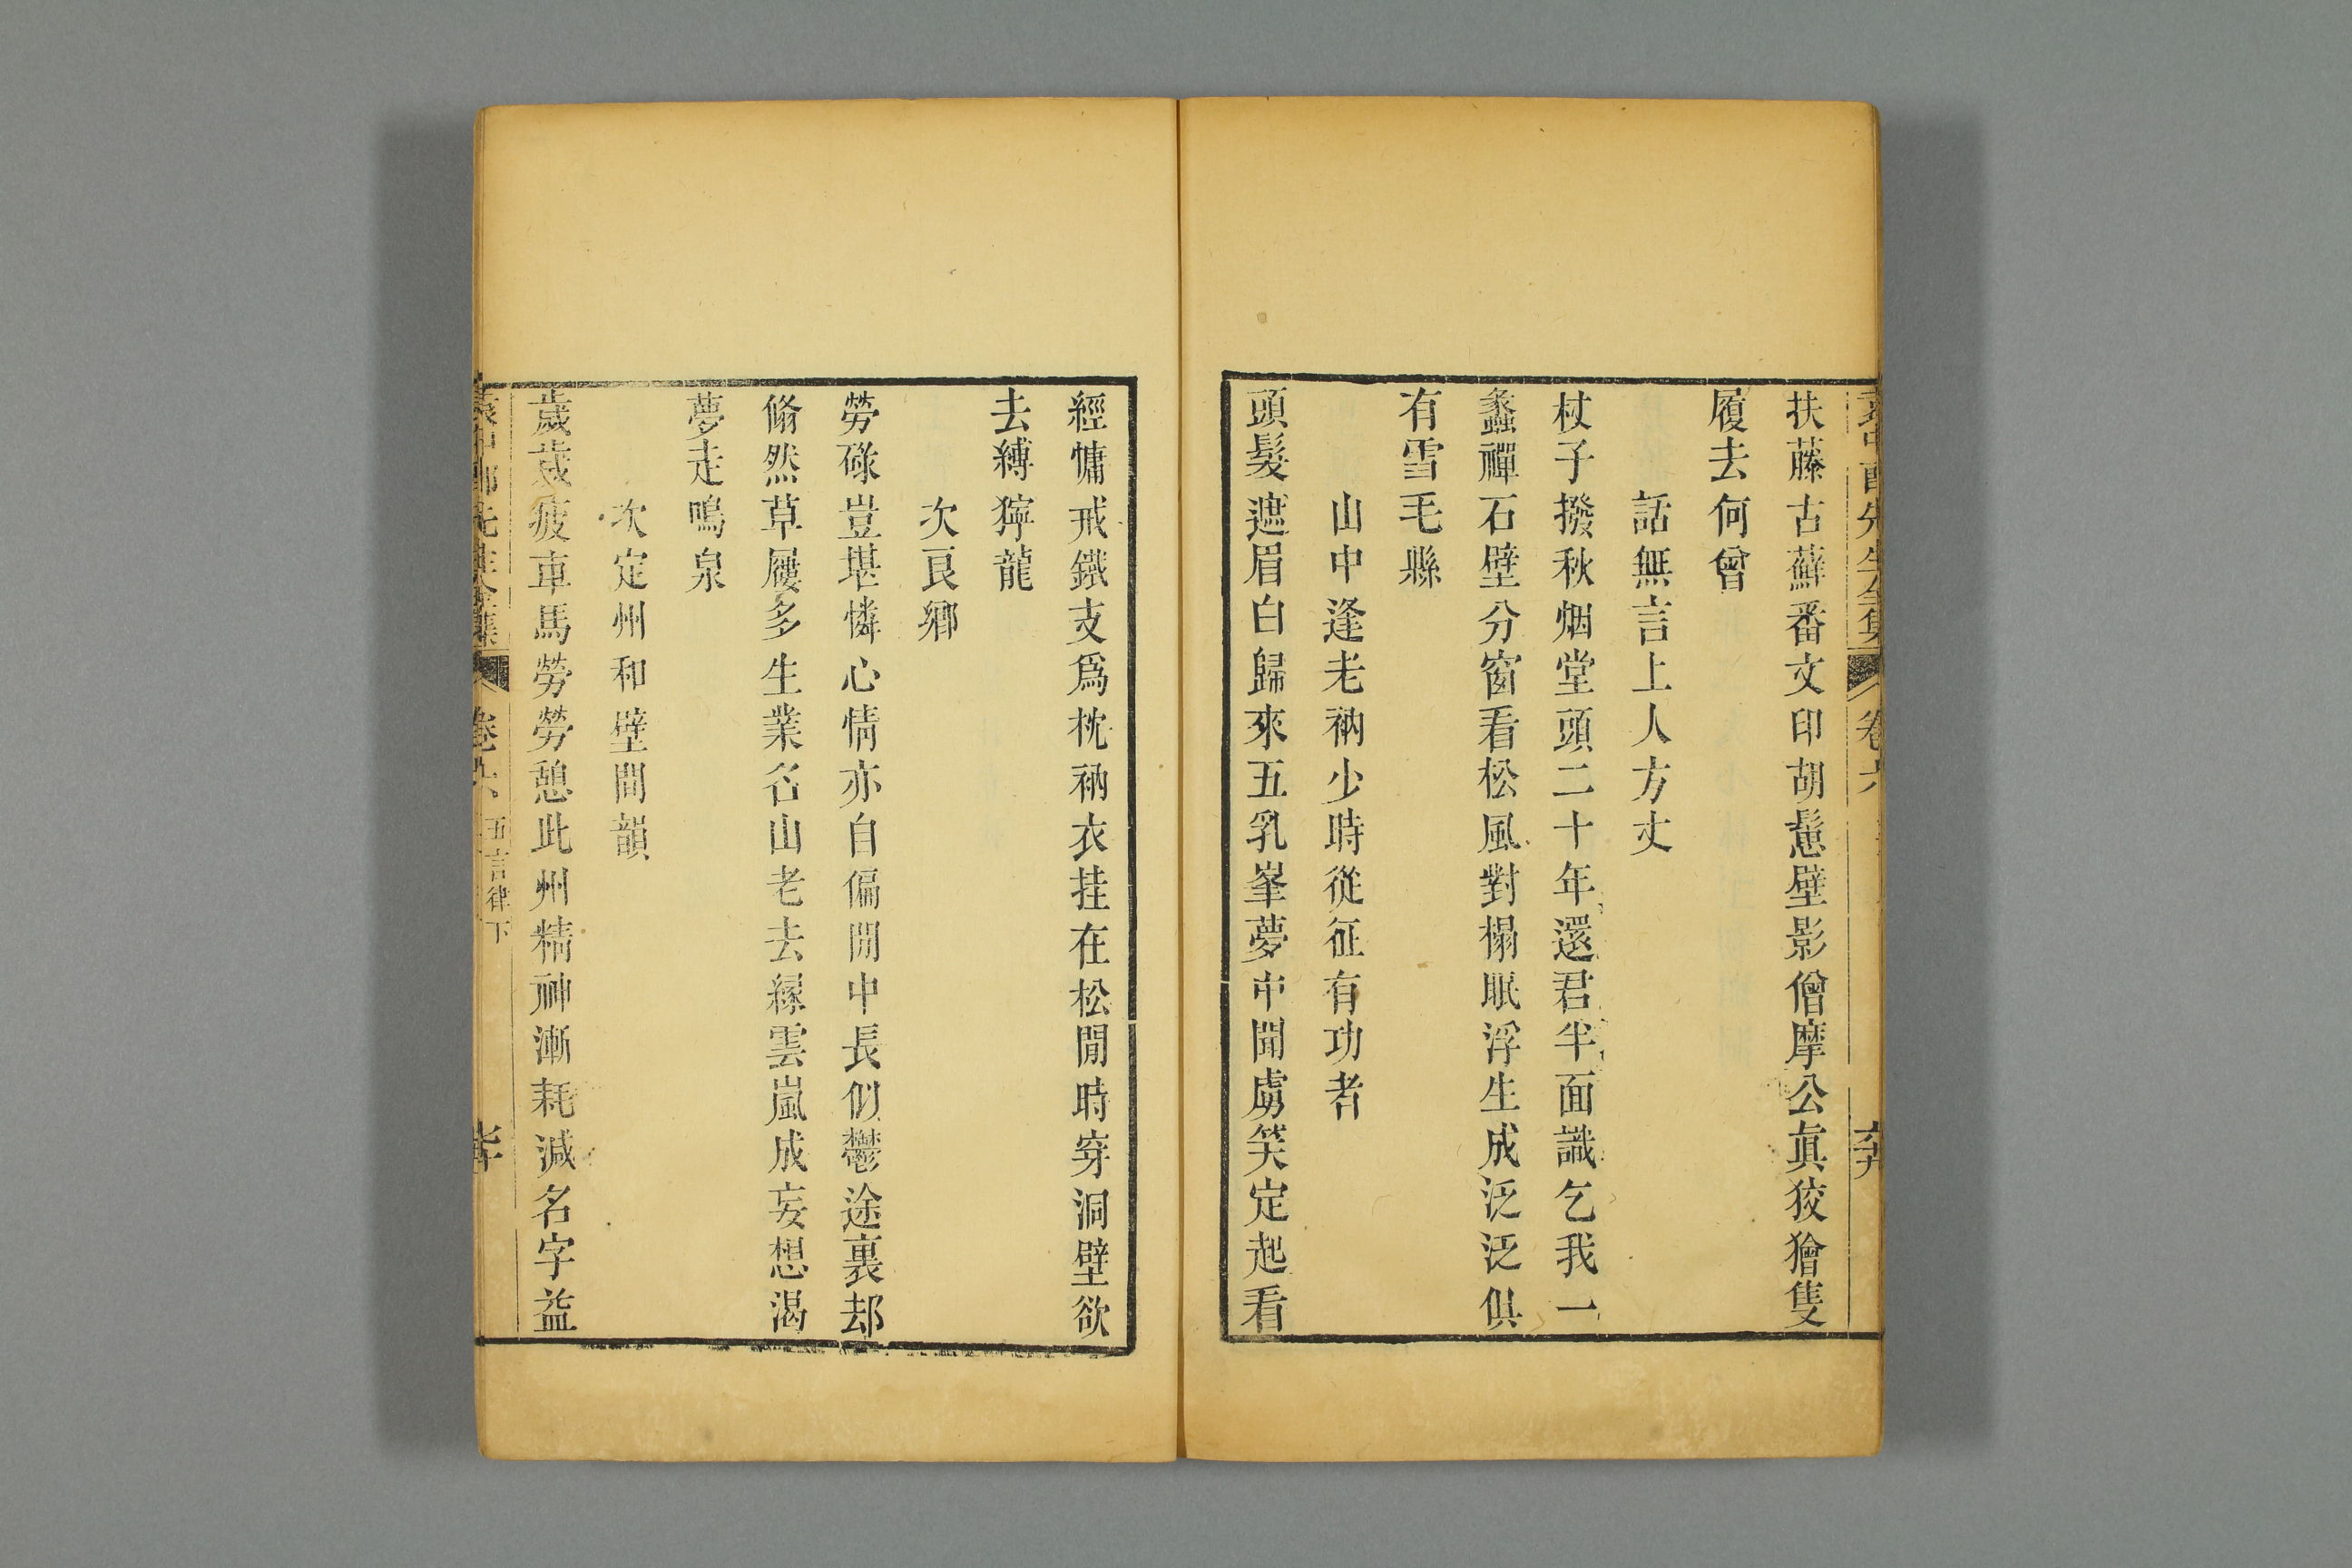 扶藤古蘚番文印胡髡壁影僧摩公眞狡獪隻
履去何曾
話無言上人方丈
杖子撥秋烟堂頭二十年還君半面識乞我一
蠡禪石壁分窗看松風對榻眠浮生成泛泛俱
有雪毛縣
山中逢老衲少時從征有功者
頭髮遮眉白歸來五乳峯夢中聞虜笑定起看
經慵戒鐵支爲枕衲衣挂在松閒時穿洞壁欲
去縛獰龍
次良鄉
勞碌豈堪憐心情亦自偏閒中長似鬱途裏却
翛然草屨多生業名山老去緣雲嵐成妄想渴
夢走鳴泉
次定州和壁間韻
歲歲疲車馬勞勞憩此州精神漸耗減名字益
袁中郎先生全集 卷六 五言律下